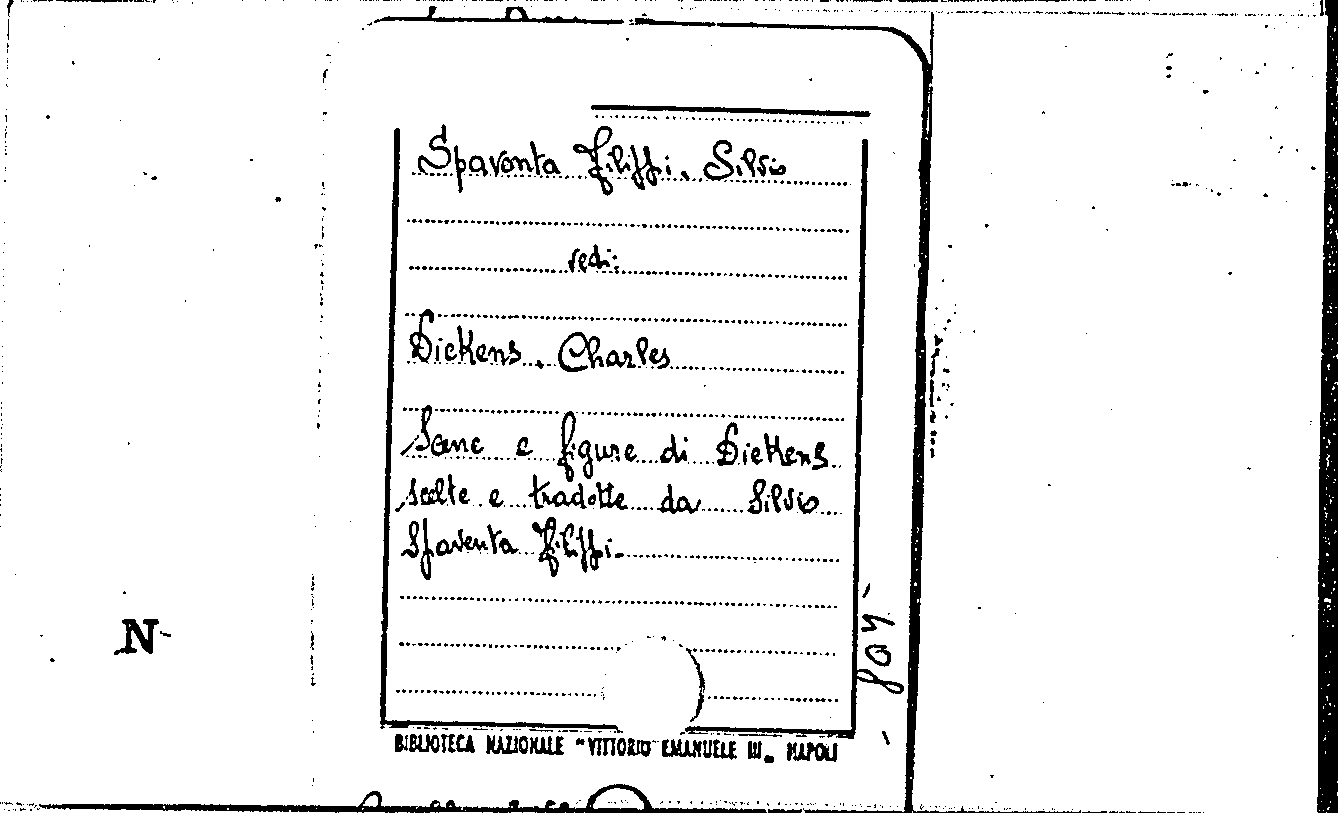 Spaventa Filippi, Silvio
vedi:
Dickens, Charles
Scene e figure di Dickens
scelte e tradotte da Silvio
Spaventa Filippi.
N
804
BIBLIOTECA NAZIONALE "VITTORIO EMANUELE III„ NAPOLI